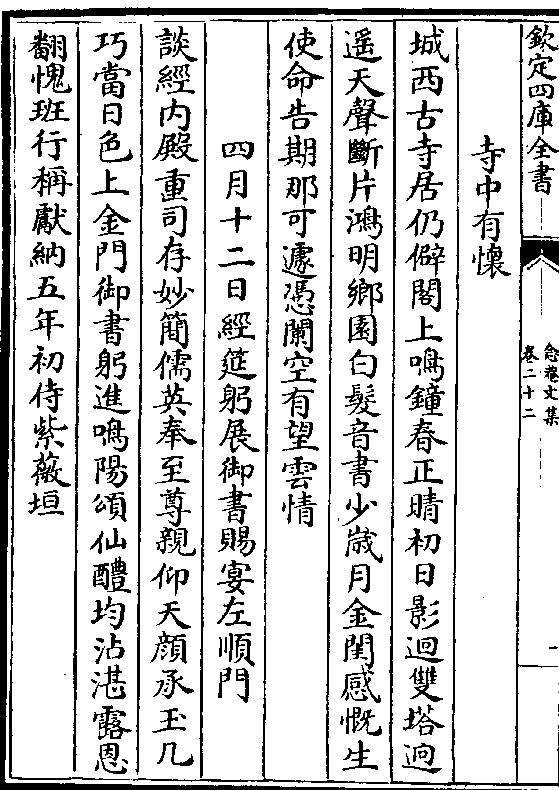 欽定四庫全書
卷二十二
寺中有懷
城西古寺居仍僻閣上鳴鐘春正晴初日影迴雙塔迥
遥天聲斷片鴻明鄉園白髮音書少歲月金閨感慨生
使命告期那可遽憑闌空有望雲情
四月十二日經筵躬展御書賜宴左順門
談經内殿重司存妙簡儒英奉至尊親仰天顔承玉几
巧當日色上金門御書躬進鳴陽頌仙醴均沾湛露恩
翻愧班行稱獻納五年初侍紫薇垣